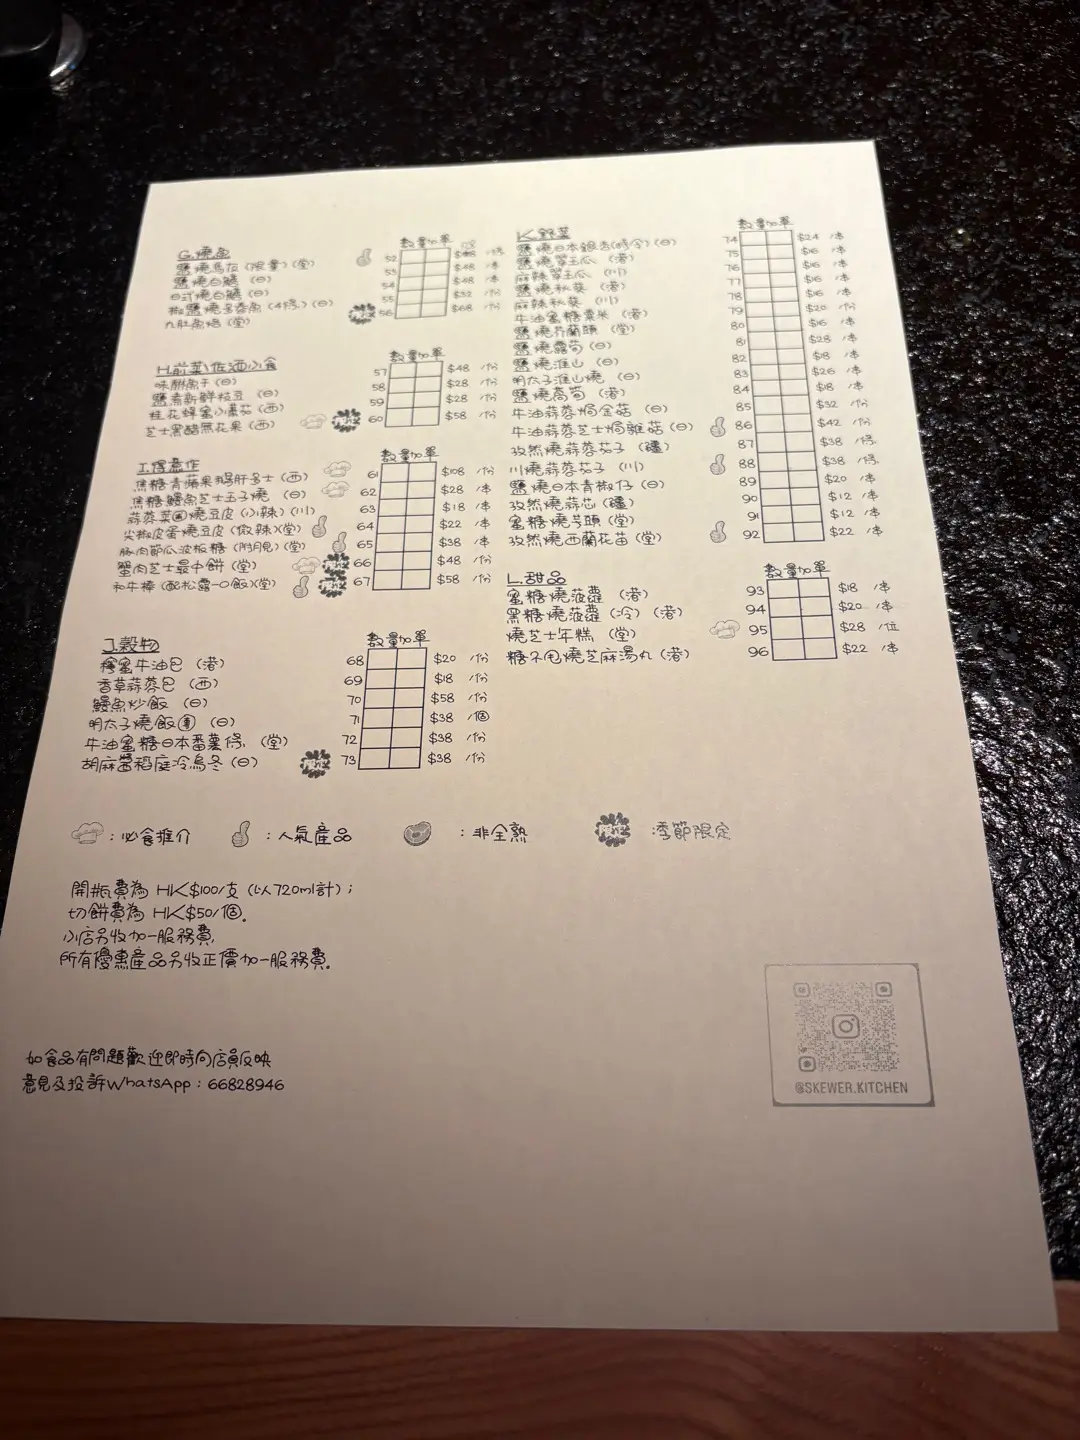 G.燒魚
數量加單
鹽燒馬友(限量)(堂) 52 /條
鹽燒白鱔 (日) 53 $48 /本
日式燒白鱔 (日) 54 $48 /本
椒鹽燒多春魚(4條)(日) 55 $32 /份
九肚魚焙(堂) 限定 56 $68 /份
H.前菜\佐酒小食
數量加單
味醂魚干(日) 57 $48 /份
鹽煮新鮮枝豆 (日) 58 $28 /份
桂花蜂蜜小番茄(西) 59 $28 /份
芝士黑醋無花果(西) 限定 60 $58 /份
I.得意作
數量加單
焦糖青蘋果鵝肝多士(西) 61 $108 /份
焦糖鰻魚芝士玉子燒 (日) 62 $28 /本
蒜蓉菜圃燒豆皮(小辣)(川) 63 $18 /本
尖椒皮蛋燒豆皮(微辣)(堂) 64 $22 /本
豚肉節瓜波板糖(附月見)(堂) 65 $38 /本
蟹肉芝士最中餅(堂) 限定 66 $48 /份
和牛棒(配松露一口飯)(堂) 限定 67 $58 /份
J.穀物
數量加單
檸蜜牛油包(港) 68 $20 /份
香草蒜蓉包(西) 69 $18 /份
鰻魚炒飯 (日) 70 $58 /份
明太子燒飯團(日) 71 $38 /個
牛油蜜糖日本番薯條 (堂) 72 $38 /份
胡麻醬稻庭冷烏冬(日) 限定 73 $38 /份
K.野菜
數量加單
鹽燒日本銀杏(時令)(日) 74 $24 /本
鹽燒翠玉瓜 (港) 75 $16 /本
麻辣翠玉瓜 (川) 76 $16 /本
鹽燒秋葵 (港) 77 $16 /本
麻辣秋葵 (川) 78 $16 /本
牛油蜜糖粟米 (港) 79 $20 /份
鹽燒芥蘭頭 (堂) 80 $16 /本
鹽燒露荀(日) 81 $28 /本
鹽燒淮山 (日) 82 $18 /本
明太子淮山燒 (日) 83 $26 /本
鹽燒萵荀 (港) 84 $18 /本
牛油蒜蓉焗金菇 (日) 85 $32 /份
牛油蒜蓉芝士焗雜菇(日) 86 $42 /份
孜然燒蒜蓉茄子 (疆) 87 $38 /條
川燒蒜蓉茄子 (川) 88 $38 /條
鹽燒日本青椒仔(日) 89 $20 /本
孜然燒蒜芯(疆) 90 $12 /本
蜜糖燒芋頭(堂) 91 $12 /本
孜然燒西蘭花苗(堂) 92 $22 /本
L.甜品
數量加單
蜜糖燒菠蘿(港) 93 $18 /本
黑糖燒菠蘿(冷)(港) 94 $20 /本
燒芝士年糕 (堂) 95 $28 /位
糖不甩燒芝麻湯丸(港) 96 $22 /本
：必食推介
：人氣產品
：非全熟
限定：季節限定
開瓶費為 HK$100/支 (以720ml計)；
切餅費為 HK$50/個。
小店另收加一服務費,
所有優惠產品另收正價加一服務費。
如食品有問題歡迎即時向店員反映
意見及投訴WhatsApp：66828946
@SKEWER.KITCHEN